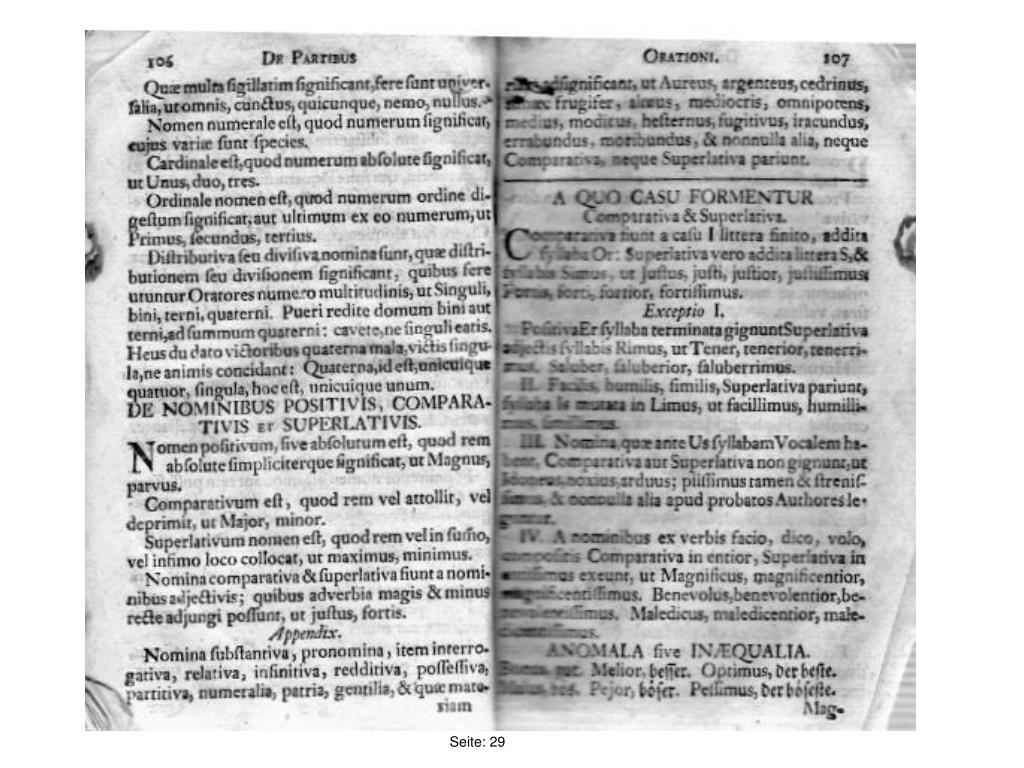 106 DE PARTIBUS
Quæ multa ſigillatim ſignificant,fere ſunt univer-
ſalia,ut omnis, cunctus, quicunque, nemo, nullus.
Nomen numerale eſt, quod numerum ſignificat,
cujus variæ ſunt ſpecies.
Cardinale eſt,quod numerum abſolute ſignificat,
ut Unus, duo, tres.
Ordinale nomen eſt, quod numerum ordine di-
geſtum ſignificat,aut ultimum ex eo numerum,ut
Primus, ſecundus, tertius.
Diſtributiva ſeu diviſiva nomina ſunt, quæ diſtri-
butionem ſeu diviſionem ſignificant, quibus fere
utuntur Oratores numero multitudinis, ut Singuli,
bini, terni, quaterni. Pueri redite domum bini aut
terni,ad ſummum quaterni: cavete,ne ſinguli eatis.
Heus du dato victoribus quaterna mala,victis ſingu-
la,ne animis concidant: Quaterna,id eſt,unicuique
quatuor, ſingula, hoc eſt, unicuique unum.
DE NOMINIBUS POSITIVIS, COMPARA-
TIVIS ET SUPERLATIVIS.
Nomen poſitivum, ſive abſolutum eſt, quod rem
abſolute ſimpliciterque ſignificat, ut Magnus,
parvus.
Comparativum eſt, quod rem vel attollit, vel
deprimit, ut Major, minor.
Superlativum nomen eſt, quod rem vel in ſum̃o,
vel infimo loco collocat, ut maximus, minimus.
Nomina comparativa & ſuperlativa fiunt a nomi-
nibus adjectivis; quibus adverbia magis & minus
recte adjungi poſſunt, ut juſtus, fortis.
Appendix.
Nomina ſubſtantiva, pronomina, item interro-
gativa, relativa, infinitiva, redditiva, poſſeſſiva,
partitiva, numeralia, patria, gentilia, & quæ mate-
riam
ORATIONI. 107
adſignificant, ut Aureus, argenteus, cedrinus,
frugifer, almus, mediocris, omnipotens,
medius, modicus, heſternus, fugitivus, iracundus,
errabundus, moribundus, & nonnulla alia, neque
Comparativa, neque Superlativa pariunt.
A QUO CASU FORMENTUR
Comparativa & Superlativa.
Comparativa fiunt a caſu I littera finito, addita
ſyllaba Or: Superlativa vero addita littera S,&
ſyllabis Simus, ut Juſtus, juſti, juſtior, juſtiſſimus:
Fortis, forti, fortior, fortiſſimus.
Exceptio I.
Poſitiva Er ſyllaba terminata gignunt Superlativa
adjectis ſyllabis Rimus, ut Tener, tenerior, tenerri-
mus. Saluber, ſaluberior, ſaluberrimus.
II. Facilis, humilis, ſimilis, Superlativa pariunt,
ſyllaba is mutata in Limus, ut facillimus, humilli-
mus, ſimillimus.
III. Nomina, quæ ante Us ſyllabam Vocalem ha-
bent, Comparativa aut Superlativa non gignunt,ut
Idoneus, noxius, arduus; piiſſimus tamen & ſtrenuiſ-
ſimus, & nonnulla alia apud probatos Authores le-
guntur.
IV. A nominibus ex verbis facio, dico, volo,
compoſitis Comparativa in entior, Superlativa in
entiſſimus exeunt, ut Magnificus, magnificentior,
magnificentiſſimus. Benevolus,benevolentior,be-
nevolentiſſimus. Maledicus, maledicentior, male-
dicentiſſimus.
ANOMALA ſive INÆQUALIA.
Bonus, gut. Melior, beſſer. Optimus, der beſte.
Malus, bös. Pejor, böſer. Peſſimus, der böſeſte.
Mag-
Seite: 29